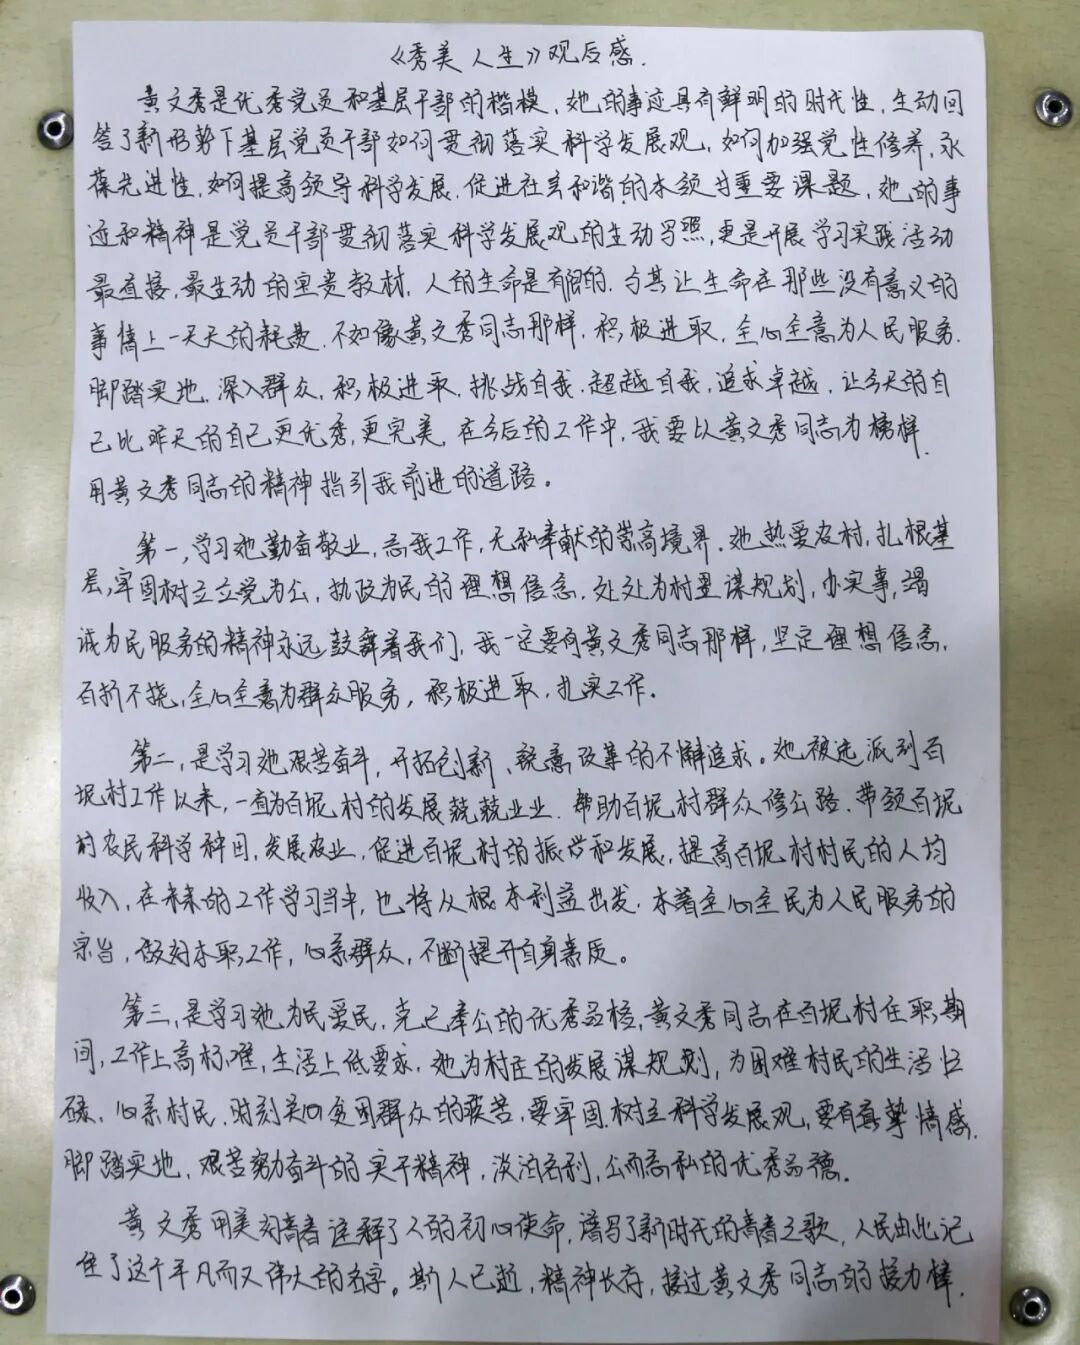 《秀美人生》观后感.
黄文秀是优秀党员和基层干部的楷模，她的事迹具有鲜明的时代性，生动回
答了新形势下基层党员干部如何贯彻落实科学发展观，如何加强党性修养，永
葆先进性，如何提高领导科学发展，促进社会和谐的本领的重要课题，她的事
迹和精神是党员干部贯彻落实科学发展观的生动写照，更是开展学习实践活动
最直接，最生动的宝贵教材，人的生命是有限的，与其让生命在那些没有意义的
事情上一天天的耗费，不如像黄文秀同志那样，积极进取，全心全意为人民服务.
脚踏实地，深入群众，积极进取，挑战自我，超越自我，追求卓越，让今天的自
己比昨天的自己更优秀，更完美，在今后的工作中，我要以黄文秀同志为榜样，
用黄文秀同志的精神指引我前进的道路。
第一，学习她勤奋敬业，忘我工作，无私奉献的崇高境界，她热爱农村，扎根基
层，牢固树立立党为公，执政为民的理想信念，处处为村里谋规划，办实事，竭
诚为民服务的精神永远鼓舞着我们，我一定要向黄文秀同志那样，坚定理想信念，
百折不挠，全心全意为群众服务，积极进取，扎实工作.
第二，是学习她艰苦奋斗，开拓创新、锐意改革的不懈追求。她被选派到百
坭村工作以来，一直为百坭村的发展兢兢业业，帮助百坭村群众修公路，带领百坭
村农民科学种田，发展农业，促进百坭村的振兴和发展，提高百坭村村民的人均
收入，在未来的工作学习当中，也将从根本利益出发，本着全心全民为人民服务的
宗旨，做好本职工作，心系群众，不断提升自身素质。
第三，是学习她为民爱民，克己奉公的优秀品格，黄文秀同志在百坭村任职期
间，工作上高标准，生活上低要求，她为村庄的发展谋规划，为困难村民的生活忙
碌，心系村民，时刻关心贫困群众的疾苦，要牢固树立科学发展观，要有真挚情感，
脚踏实地，艰苦努力奋斗的实干精神，淡泊名利，公而忘私的优秀品德。
黄文秀用美好青春诠释了人的初心使命，谱写了新时代的青春之歌，人民由此记
住了这个平凡而又伟大的名字。斯人已逝，精神长存，接过黄文秀同志的接力棒，